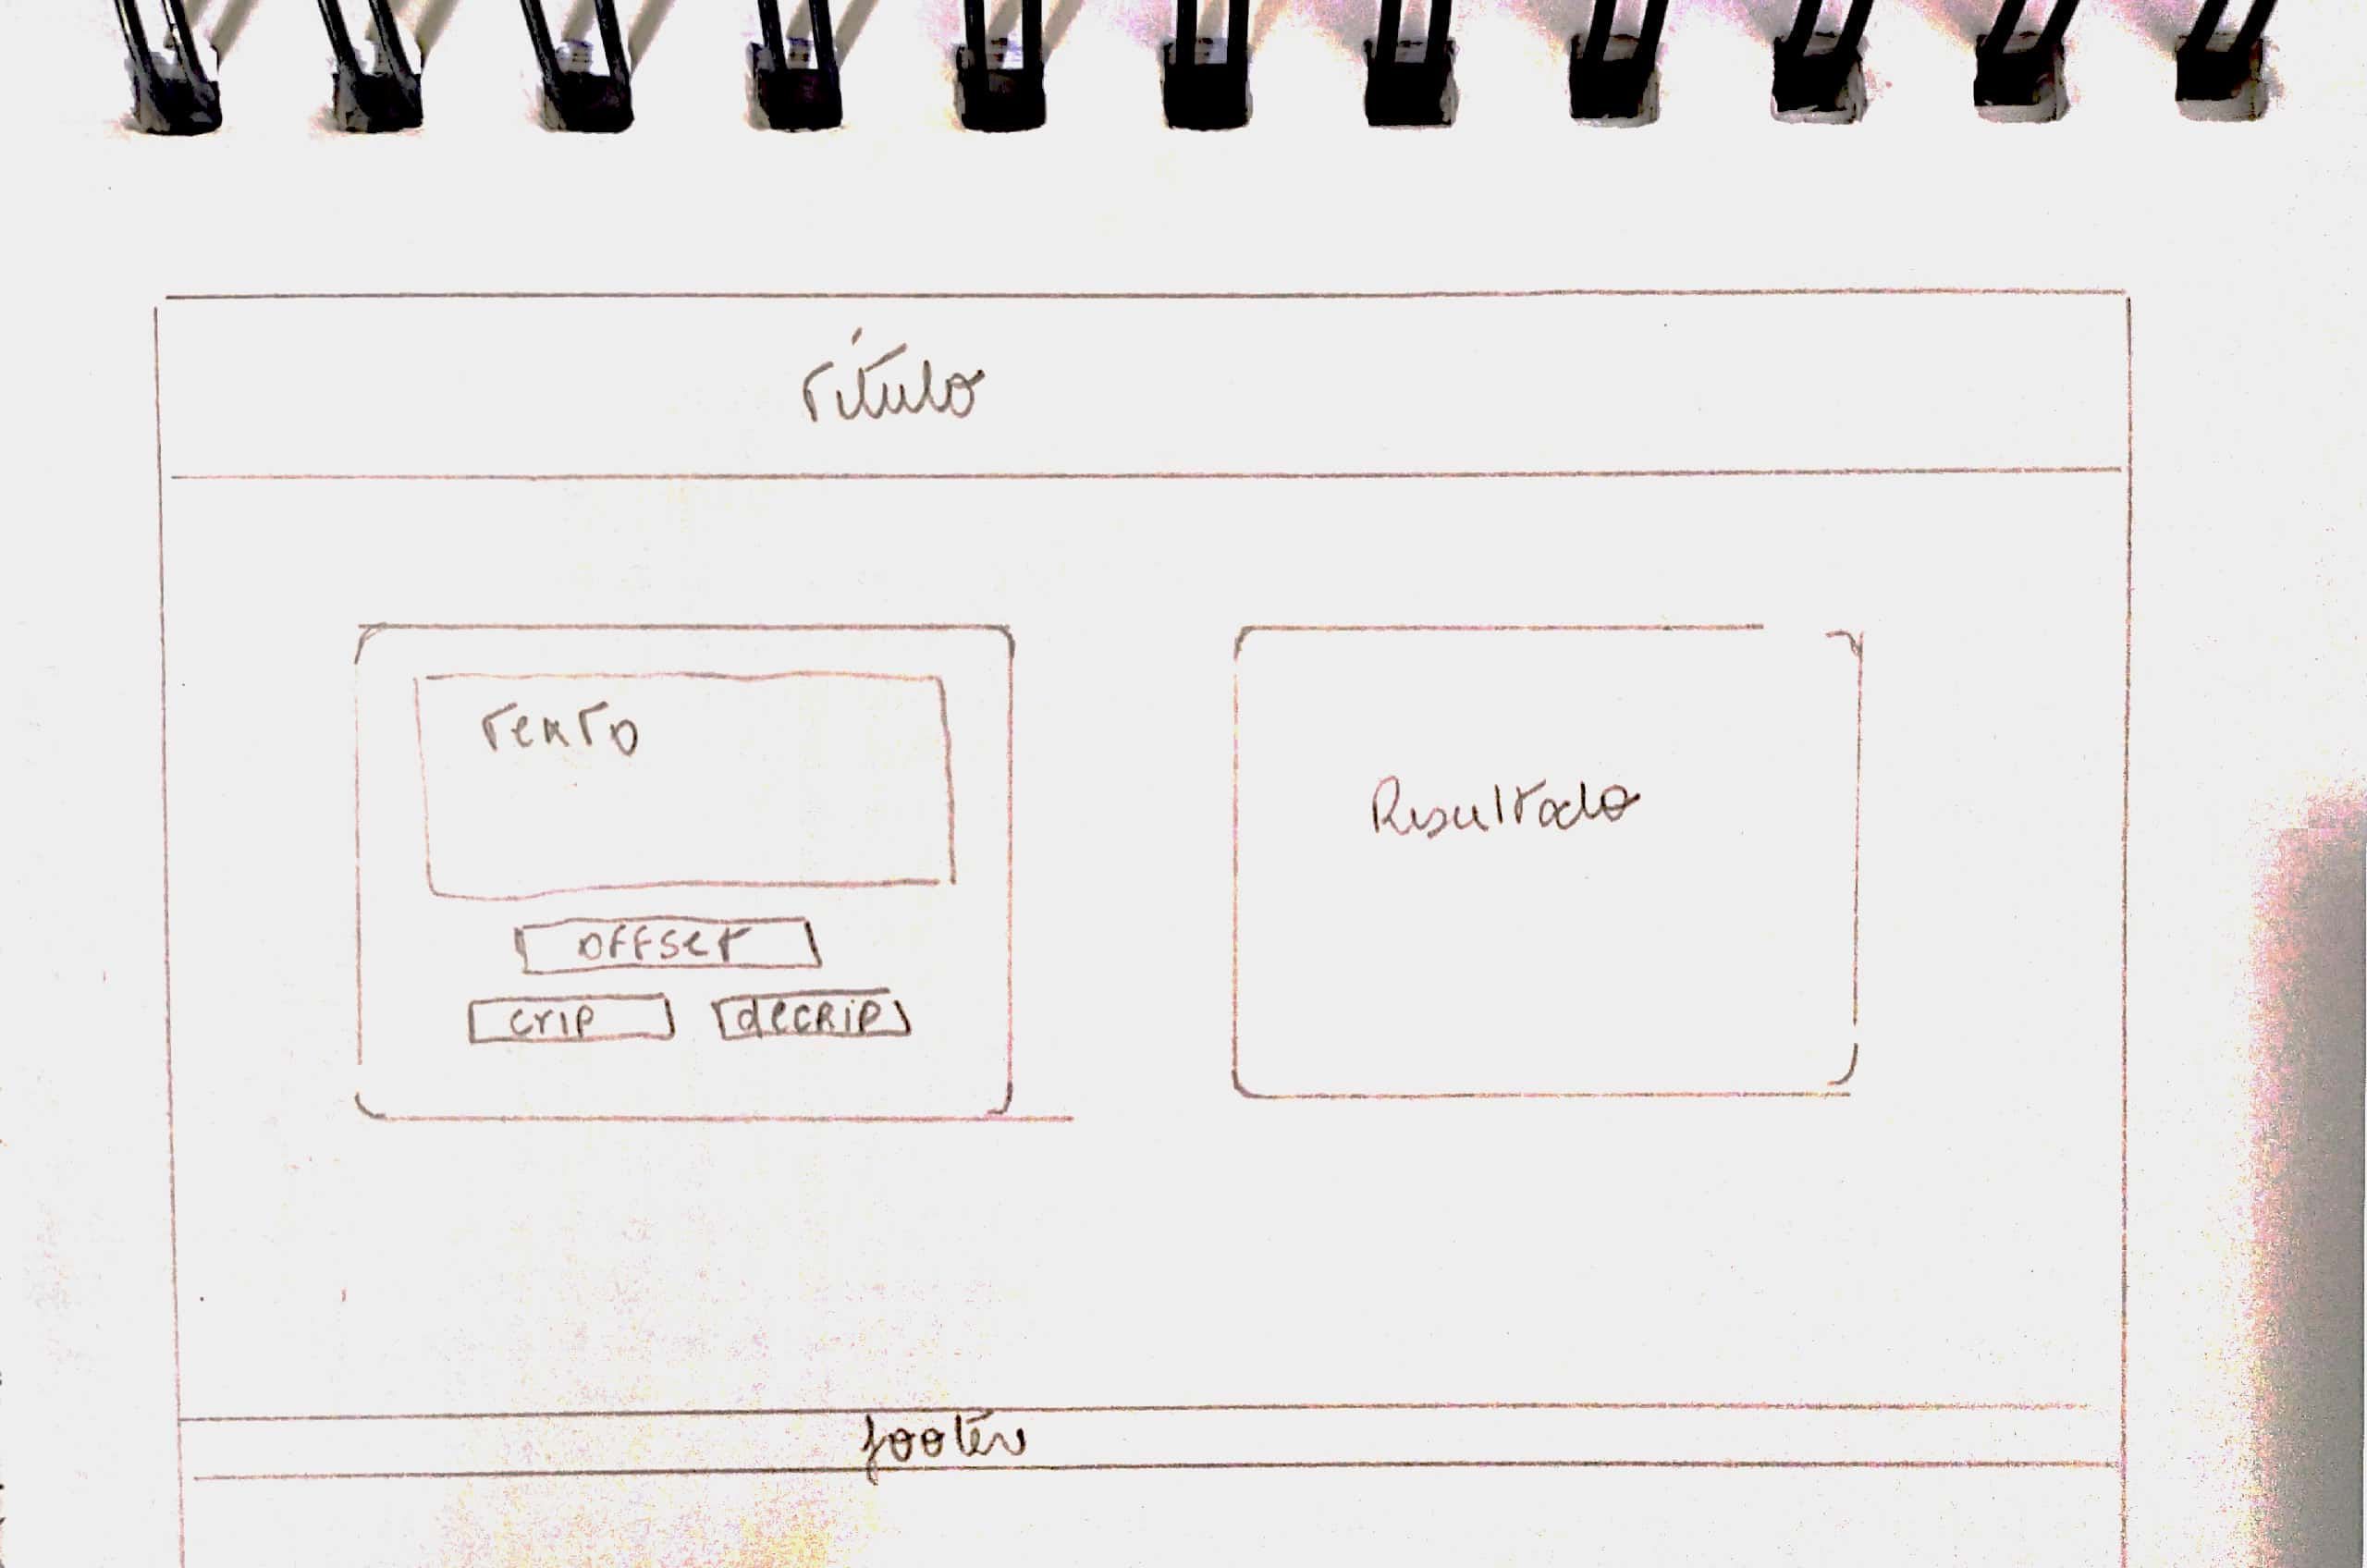 Título
Texto
OFFSet
crip decRip
Resultado
footer